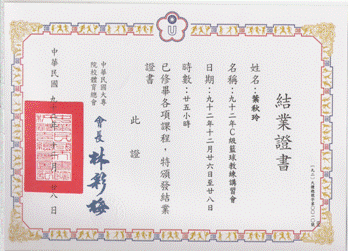 結業證書
姓名：葉秋玲
名稱：九十二年C級籃球教練講習會
日期：九十二年十二月廿六日至廿八日
時數：廿五小時
已修畢各項課程，特頒發結業
證書
此證
中華民國大專
院校體育總會
會長 林彩梅
中華民國九十二年十二月廿八日